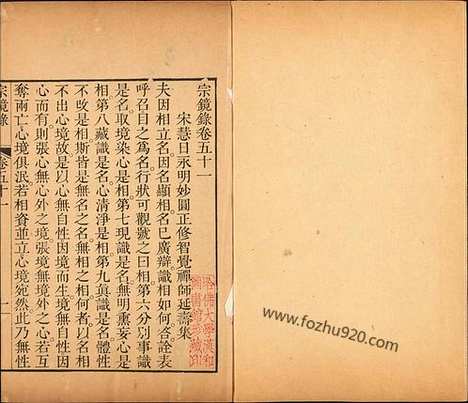 宗鏡錄卷五十一
宋慧日永明妙圓正修智覺禪師延壽集
夫因相立名因名已廣辯識相如何答詮表
呼召目之為名行狀可觀號之曰相第六分別事識
是名取境染心是相第七現識是名無明熏妄心是
相第八藏識是名心清淨是相第九真識是名體性
不改是相斯皆是無名之名無相之相何者以名相
不出心境故是以心無自性因境而生境無自性因
心而有則張心無心外之境張境無境外之心若互
奪兩亡心境俱泯若相資並立心境宛然此乃無性
宗鏡錄
卷五十一
一
www.fozhu920.com